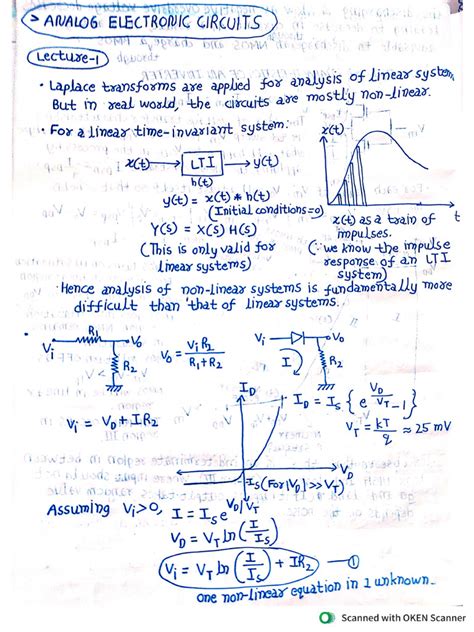 > ANALOG ELECTRONIC CIRCUITS
Lecture-1
• Laplace transforms are applied for analysis of linear system,
But in real world, the circuits are mostly non-linear.
• For a linear time-invariant system:
x(t)
x(t) → LTI → y(t)
h(t)
y(t) = x(t) * h(t)
(Initial conditions=0)
t
x(t) as a train of
impulses.
Y(s) = X(s) H(s)
(This is only valid for
linear systems)
(∵ we know the impulse
response of an LTI
system)
Hence analysis of non-linear systems is fundamentally more
difficult than that of linear systems.
R1
Vi
Vo
R2
Vo = ViR2 / R1+R2
Vi
Vo
I
R2
ID
ID = Is { e^(VD/VT) -1 }
VT = kT/q ≈ 25 mV
Vi = VD + IR2
VD
Is (For |VD| >> VT)
Assuming Vi>0, I = Is e^(VD/VT)
VD = VT ln (I/Is)
Vi = VT ln (I/Is) + IR2 — ①
one non-linear equation in 1 unknown.
Scanned with OKEN Scanner